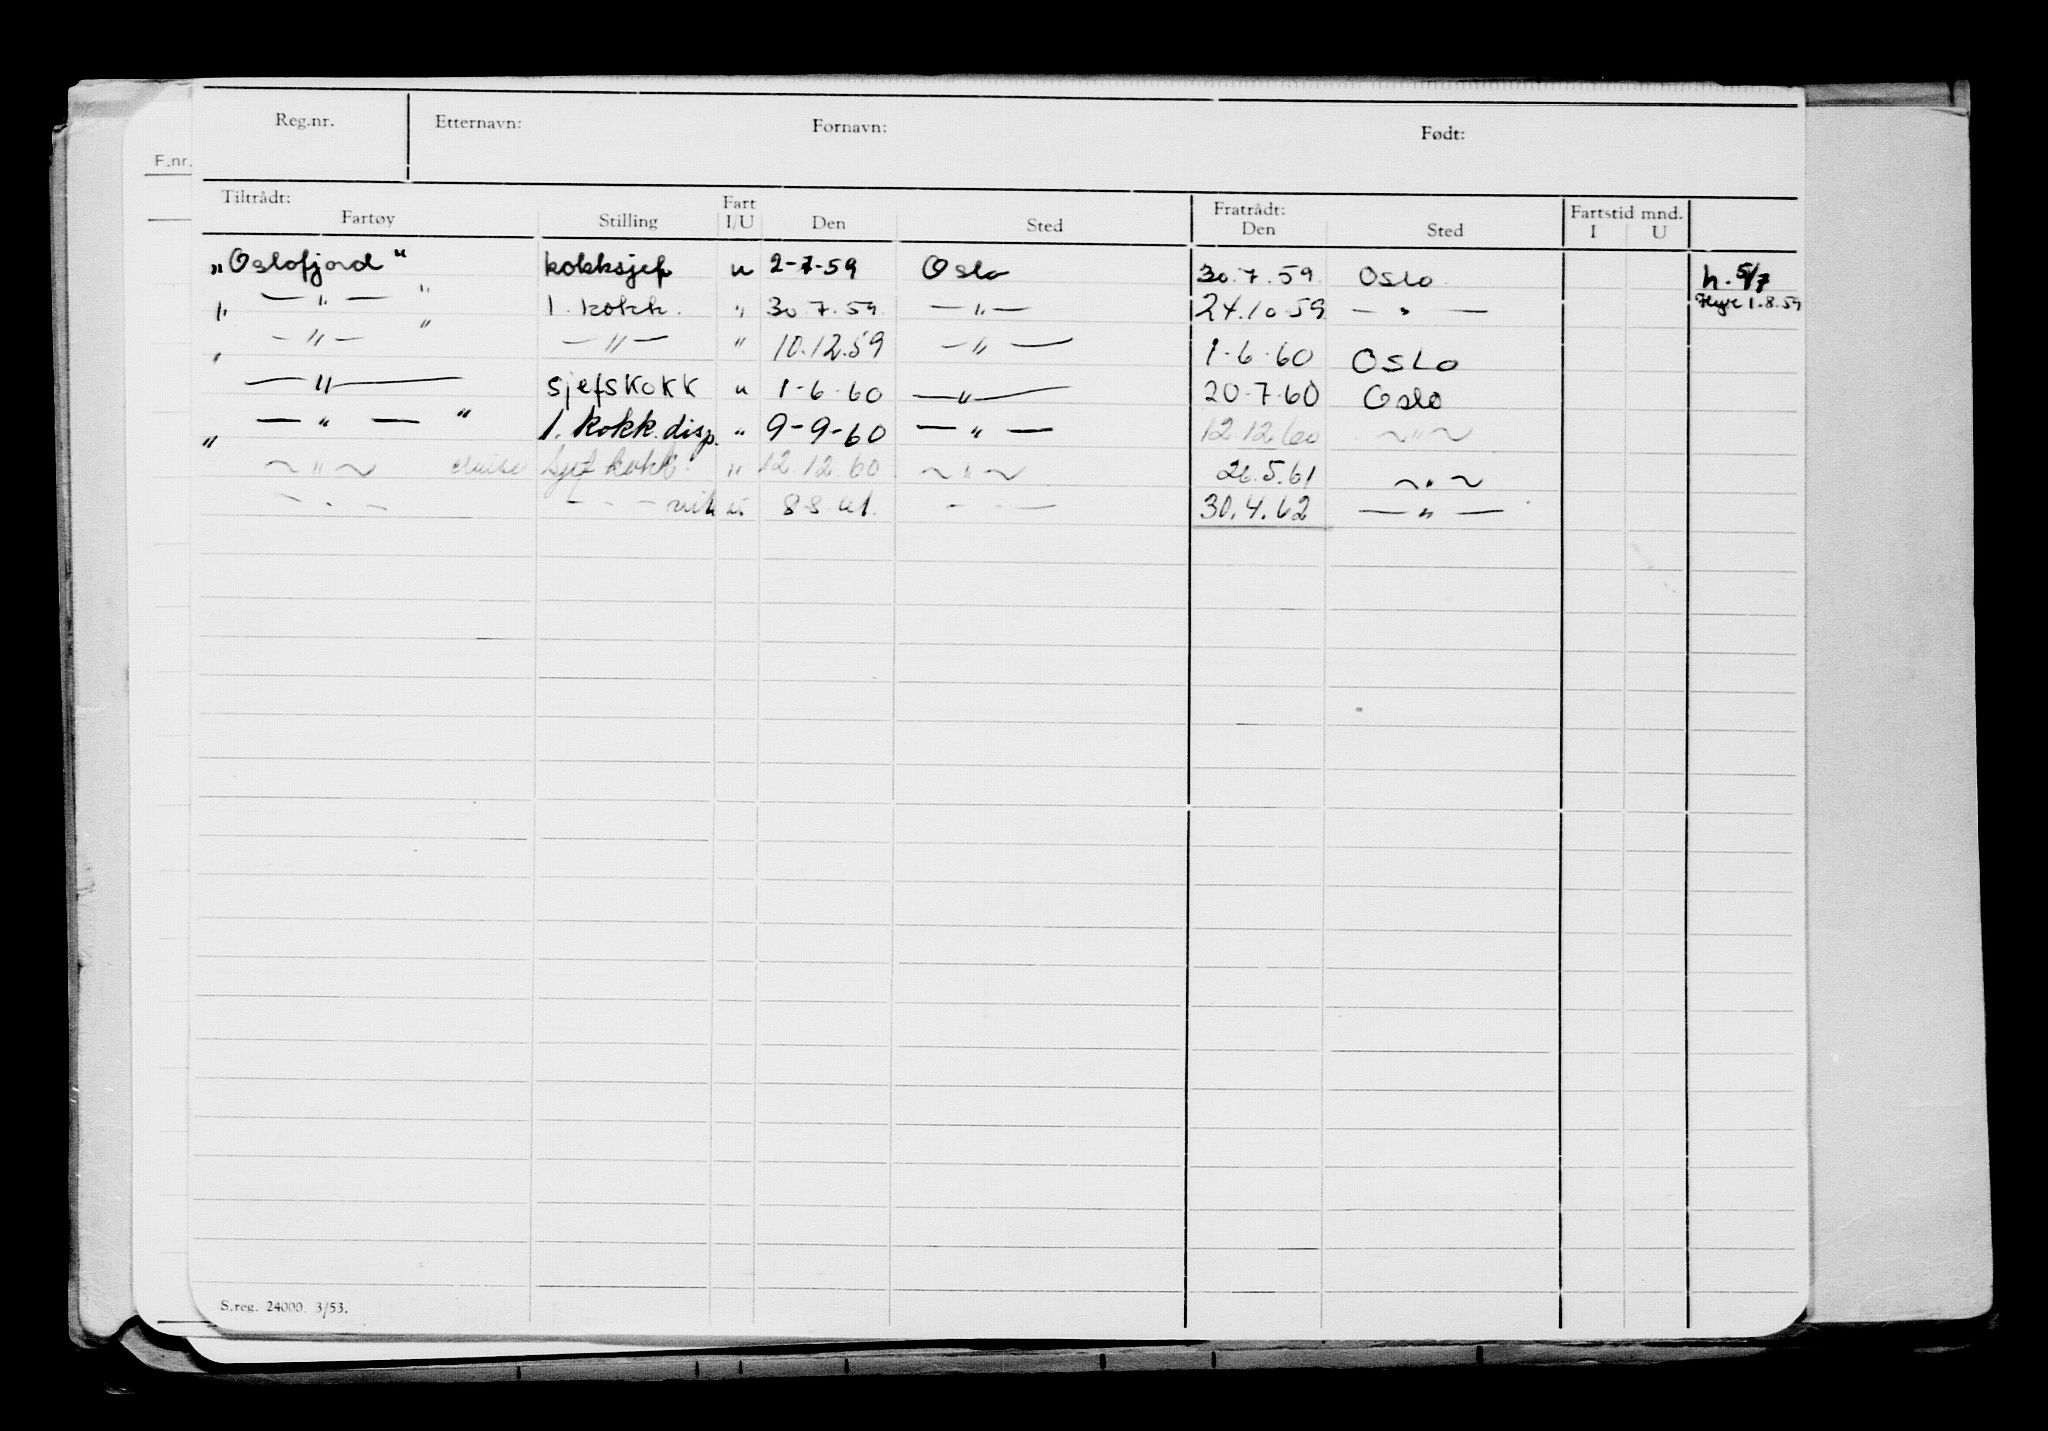 Reg.nr. Etternavn: Fornavn: Født:
F.nr.
Tiltrådt: Fartøy Stilling Fart I/U Den Sted Fratrådt: Den Sted Fartstid mnd. I U
"Oslofjord" kokksjef u 2-7-59 Oslo 30.7.59. Oslo h. 5/7
" — " — " 1. kokk. " 30.7.59. — " — 24.10.59 — " — Hyre 1.8.59
" — " — " — " — " 10.12.59 — " — 1-6-60 OSLO
— " — sjefskokk u 1-6-60 — " — 20-7-60 Oslo
" — " — " 1. kokk.disp. " 9-9-60 — " — 12.12.60 ~ " ~
~ " ~ cruise sjef kokk. " 12.12.60 ~ " ~ 26.5.61 ~ " ~
- . - - - - u. 8.8.61. - - - 30.4.62 — " —
S.reg. 24000. 3/53.